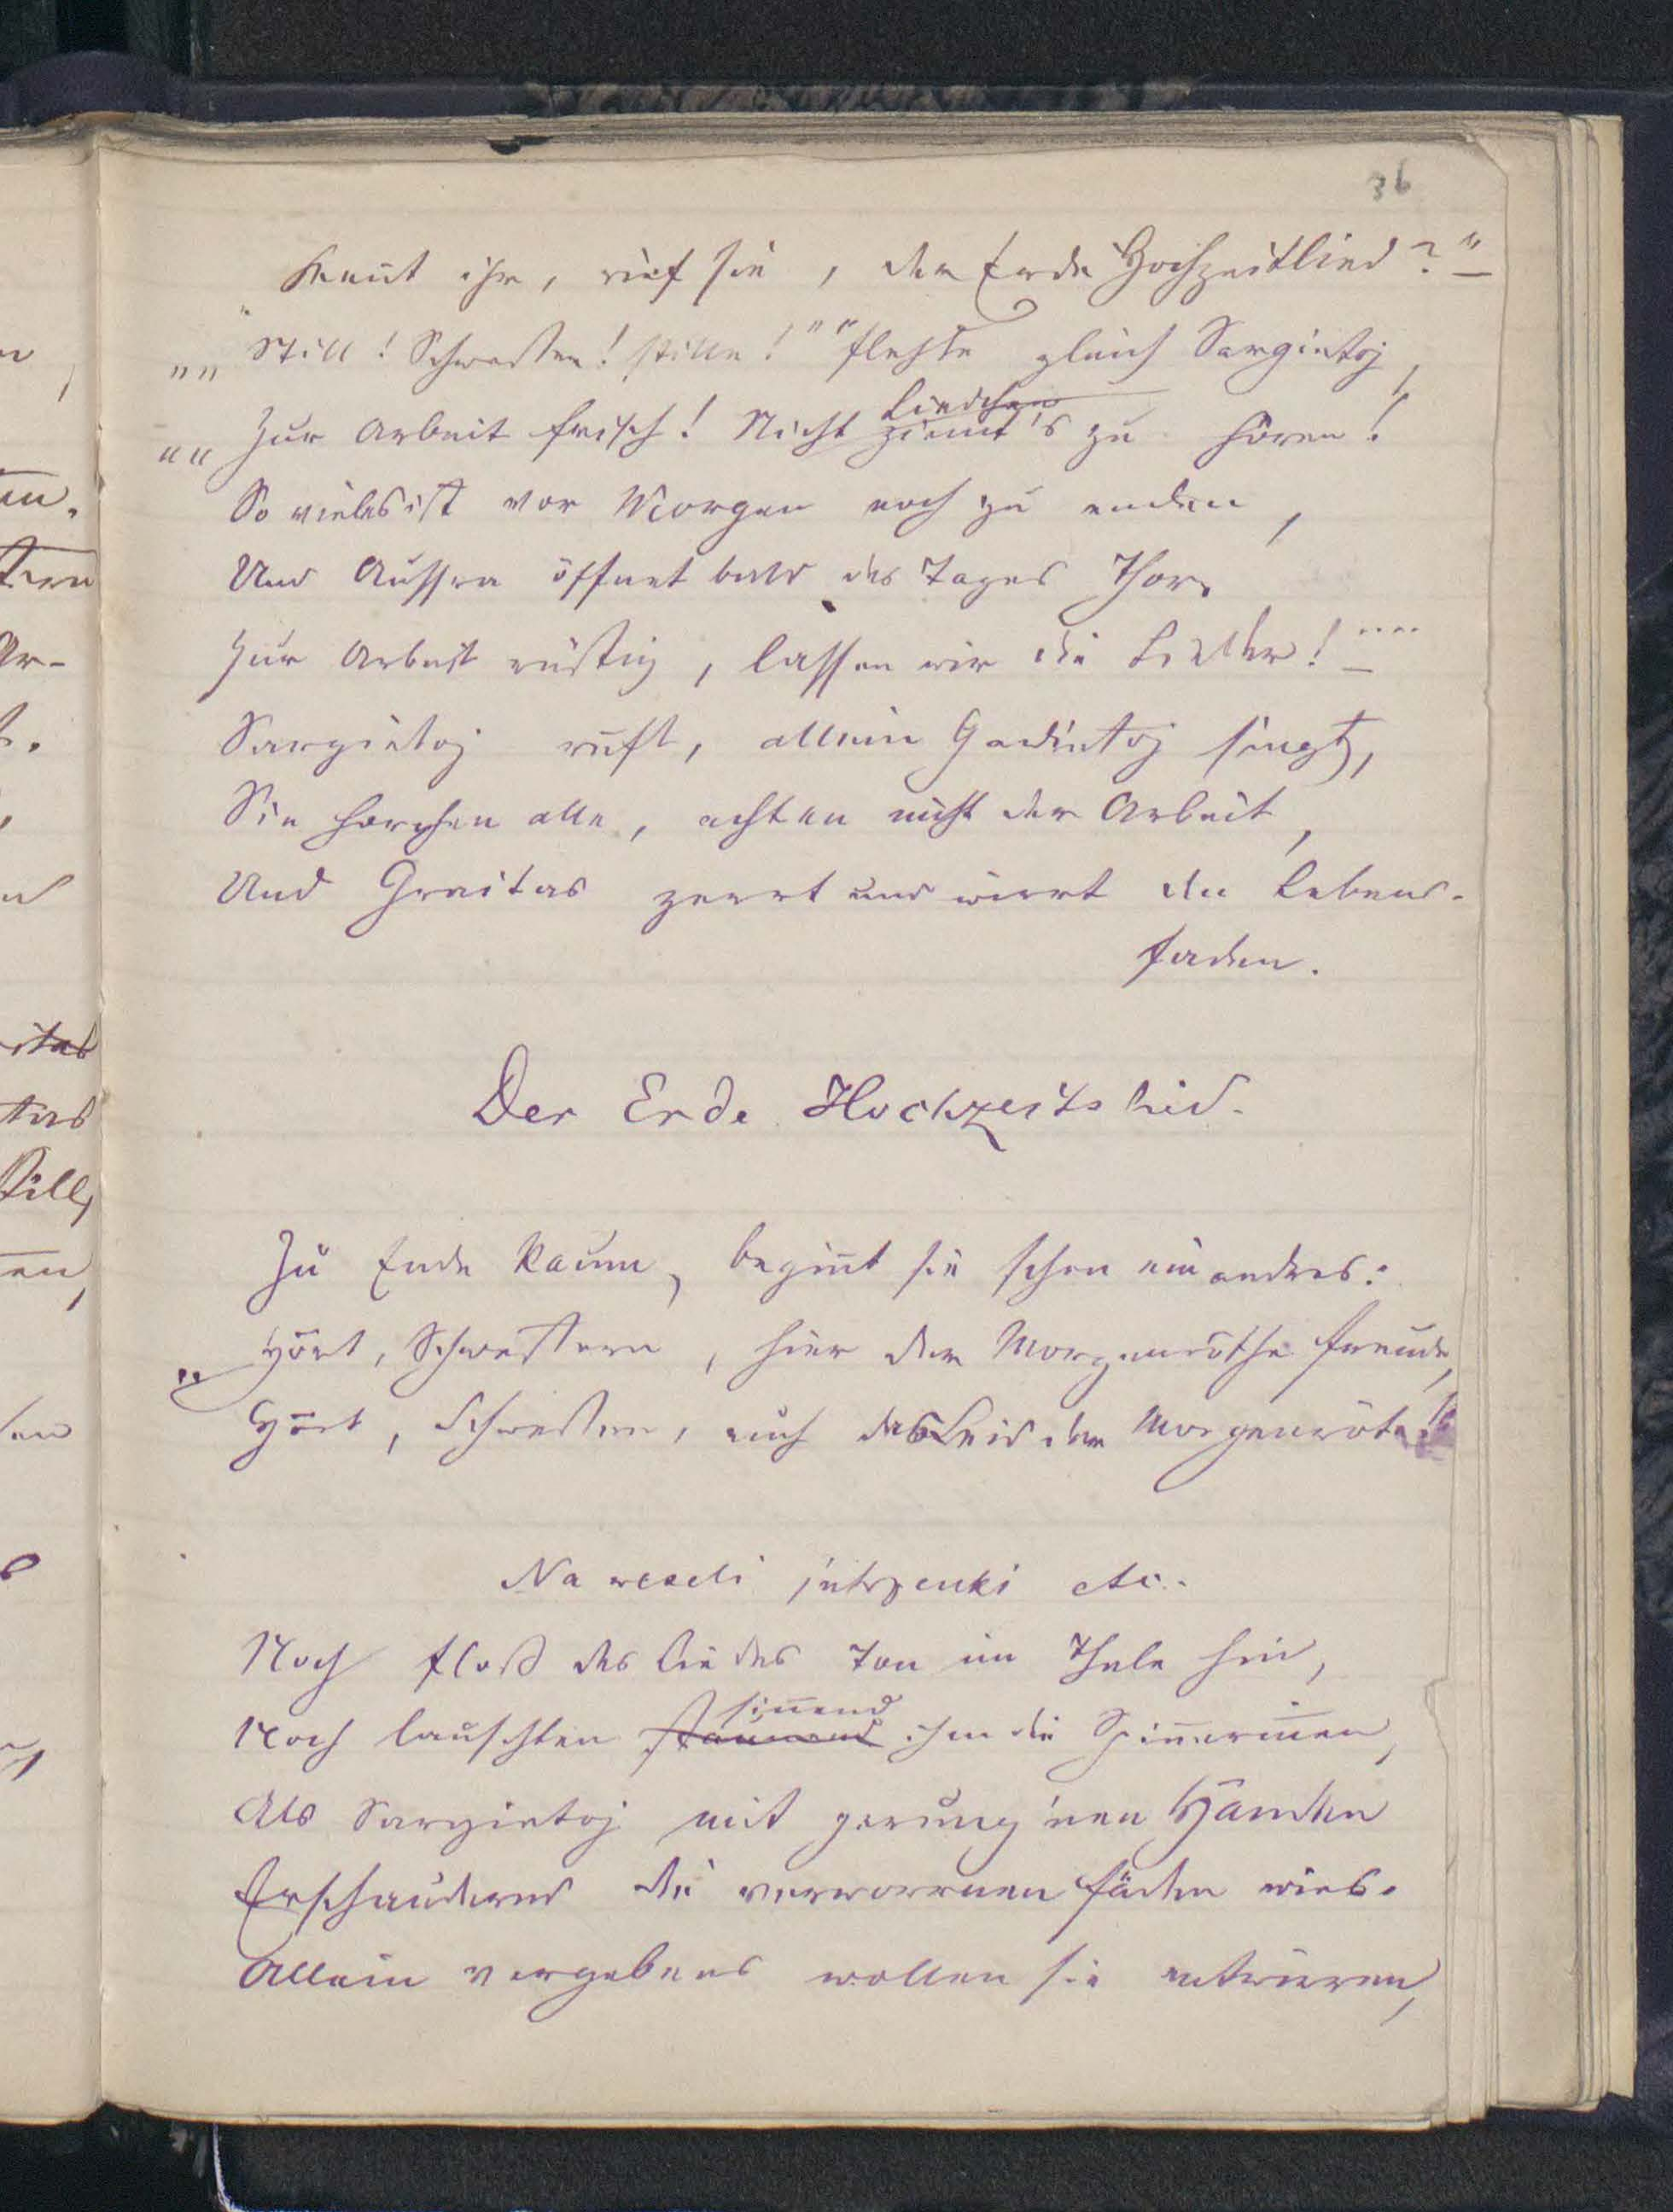 36
„Kennt ihr, rief sie, der Erde Hochzeitlied?"
„„Still! Schwester! stille!"" flehte gleich Sargietoj,
„„Zur Arbeit frisch! Nicht ziemt's Liedchen zu hören!
So vieles ist vor Morgen noch zu enden,
Und Aussra öffnet bald des Tages Thor.
Zur Arbeit rüstig, lassen wir die Lieder!""
Sargietoj ruft, allein Gadintoj singt,
Sie horchen alle, achten nicht der Arbeit,
Und Greitas zerrt und wirrt den Lebens-
faden.
Der Erde Hochzeitslied.
Zu Ende kaum, begin̄t sie schon ein andres:
„Hört, Schwestern, hier der Morgenröthe Freude,
Hört, Schwestern, auch das Leid der Morgenröte!"
Na weseli jutrzenki etc.
Noch floß des Liedes Ton im Thale hin,
Noch lauschten staunend sin̄end ihm die Spin̄erin̄en,
Als Sargietoj mit gerung'nen Händen
Erschaudernd die verworrnen Fäden wies.
Allein vergebens wollen sie entwirren,